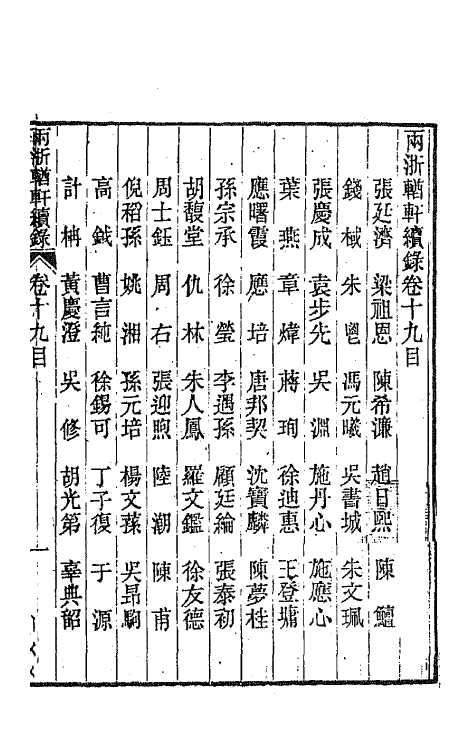 兩浙輶軒續錄卷十九目
張廷濟 梁祖恩 陳希濂 趙日熙 陳鱣
錢棫 朱鬯 馮元曦 吳書城 朱文珮
張慶成 袁步先 吳淵 施丹心 施應心
葉燕 章煒 蔣珣 徐迪惠 王登墉
應曙霞 應培 唐邦契 沈寶麟 陳夢桂
孫宗承 徐瑩 李遇孫 顧廷綸 張泰初
胡馥堂 仇林 朱人鳳 羅文鑑 徐友德
周士鈺 周右 張迎煦 陸潮 陳甫
倪稻孫 姚湘 孫元培 楊文蓀 吳昂駒
高鉞 曹言純 徐錫可 丁子復 于源
計枬 黃慶澄 吳修 胡光第 辜典韶
兩浙輶軒續錄 卷十九目 一